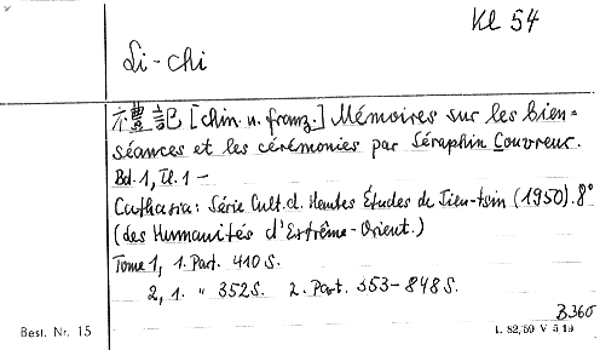 Kl 54
Li-chi
禮記 [chin. u. franz.] Mémoires sur les bien=
séances et les cérémonies par Séraphin Couvreur.
Bd. 1, Tl. 1 -
Cathasia: Série Cult. d. Hautes Études de Tien-tsin (1950). 8°
(des Humanités d'Extrême-Orient.)
Tome 1, 1. Part. 410 S.
2, 1. " 352 S. 2. Part. 353-848 S.
B.360
Best. Nr. 15
L 82/50 V 5 19